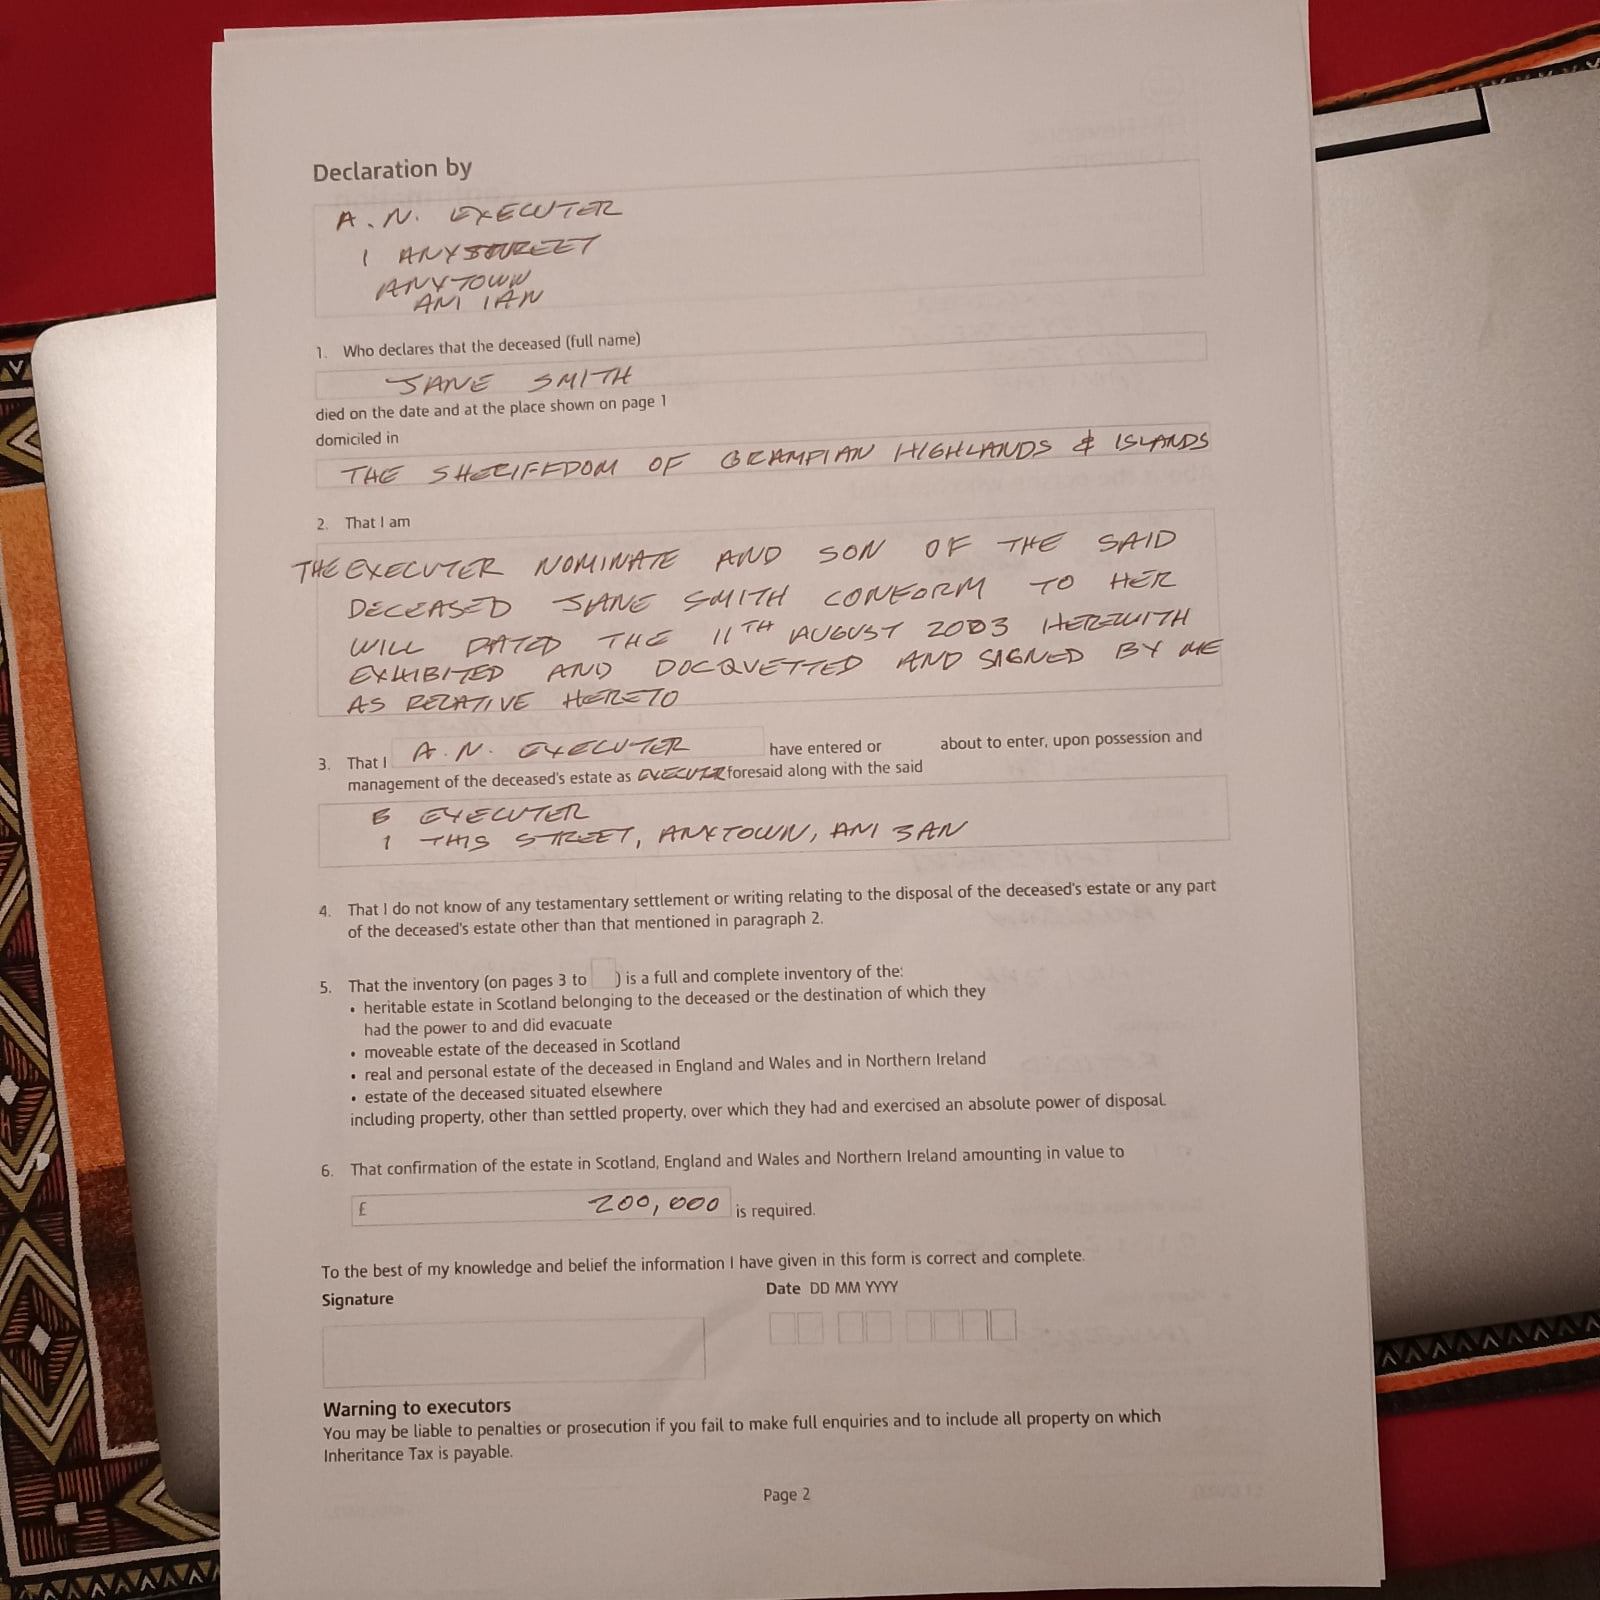 Declaration by
A. N. EXECUTER
1 ANYSTREET
ANYTOWN
AN1 1AN
1. Who declares that the deceased (full name)
JANE SMITH
died on the date and at the place shown on page 1
domiciled in
THE SHERIFFDOM OF GRAMPIAN HIGHLANDS & ISLANDS
2. That I am
THE EXECUTER NOMINATE AND SON OF THE SAID
DECEASED JANE SMITH CONFORM TO HER
WILL DATED THE 11TH AUGUST 2003 HEREWITH
EXHIBITED AND DOCQUETTED AND SIGNED BY ME
AS RELATIVE HERETO
3. That I A. N. EXECUTER have entered or about to enter, upon possession and
management of the deceased's estate as EXECUTER foresaid along with the said
B EXECUTER
1 THIS STREET, ANYTOWN, AN1 3AN
4. That I do not know of any testamentary settlement or writing relating to the disposal of the deceased's estate or any part
of the deceased's estate other than that mentioned in paragraph 2.
5. That the inventory (on pages 3 to ) is a full and complete inventory of the:
• heritable estate in Scotland belonging to the deceased or the destination of which they
had the power to and did evacuate
• moveable estate of the deceased in Scotland
• real and personal estate of the deceased in England and Wales and in Northern Ireland
• estate of the deceased situated elsewhere
including property, other than settled property, over which they had and exercised an absolute power of disposal.
6. That confirmation of the estate in Scotland, England and Wales and Northern Ireland amounting in value to
£ 200,000 is required.
To the best of my knowledge and belief the information I have given in this form is correct and complete.
Signature Date DD MM YYYY
Warning to executors
You may be liable to penalties or prosecution if you fail to make full enquiries and to include all property on which
Inheritance Tax is payable.
Page 2